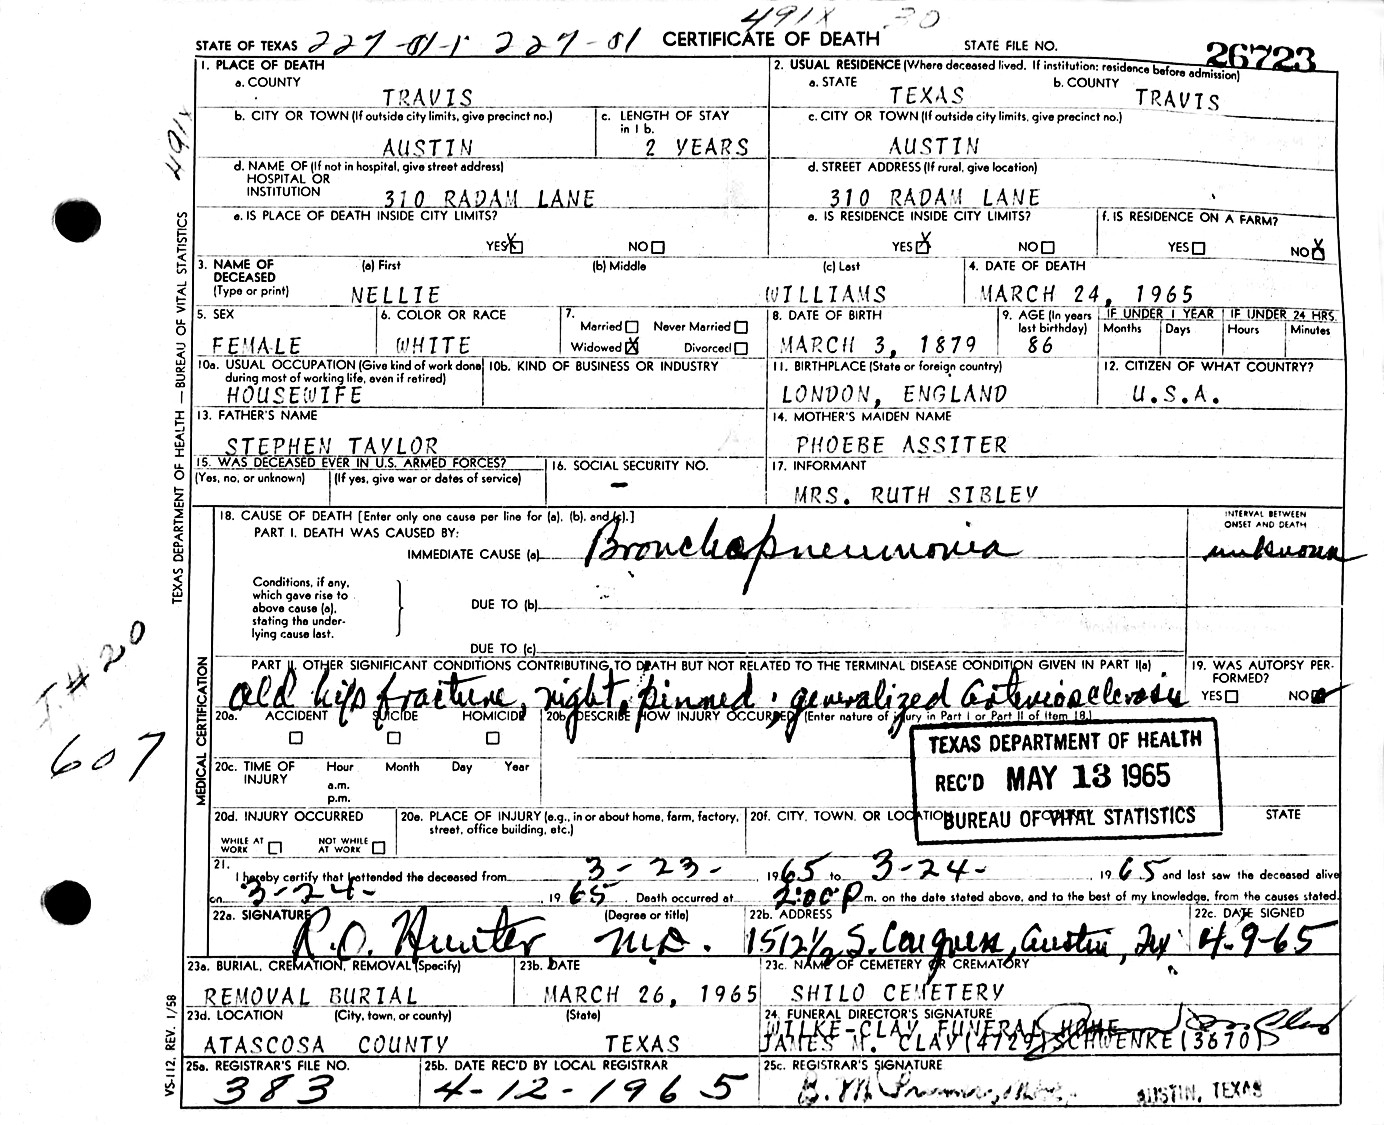 491X 30
STATE OF TEXAS 227-01-1 227-01 CERTIFICATE OF DEATH STATE FILE NO. 26723
1. PLACE OF DEATH
a. COUNTY
TRAVIS
2. USUAL RESIDENCE (Where deceased lived. If institution: residence before admission)
a. STATE b. COUNTY
TEXAS TRAVIS
b. CITY OR TOWN (If outside city limits, give precinct no.)
AUSTIN
c. LENGTH OF STAY
in 1 b.
2 YEARS
c. CITY OR TOWN (If outside city limits, give precinct no.)
AUSTIN
d. NAME OF (If not in hospital, give street address)
HOSPITAL OR
INSTITUTION
310 RADAM LANE
d. STREET ADDRESS (If rural, give location)
310 RADAM LANE
e. IS PLACE OF DEATH INSIDE CITY LIMITS?
YES X NO
e. IS RESIDENCE INSIDE CITY LIMITS?
YES X NO
f. IS RESIDENCE ON A FARM?
YES NO X
3. NAME OF
DECEASED
(Type or print)
(a) First (b) Middle (c) Last
NELLIE WILLIAMS
4. DATE OF DEATH
MARCH 24, 1965
5. SEX
FEMALE
6. COLOR OR RACE
WHITE
7.
Married Never Married
Widowed X Divorced
8. DATE OF BIRTH
MARCH 3, 1879
9. AGE (In years
last birthday)
86
IF UNDER 1 YEAR IF UNDER 24 HRS.
Months Days Hours Minutes
10a. USUAL OCCUPATION (Give kind of work done
during most of working life, even if retired)
HOUSEWIFE
10b. KIND OF BUSINESS OR INDUSTRY
11. BIRTHPLACE (State or foreign country)
LONDON, ENGLAND
12. CITIZEN OF WHAT COUNTRY?
U.S.A.
13. FATHER'S NAME
STEPHEN TAYLOR
14. MOTHER'S MAIDEN NAME
PHOEBE ASSITER
15. WAS DECEASED EVER IN U.S. ARMED FORCES?
(Yes, no, or unknown) (If yes, give war or dates of service)
16. SOCIAL SECURITY NO.
-
17. INFORMANT
MRS. RUTH SIBLEY
18. CAUSE OF DEATH [Enter only one cause per line for (a), (b), and (c).]
PART I. DEATH WAS CAUSED BY:
IMMEDIATE CAUSE (a) Bronchopneumonia
INTERVAL BETWEEN
ONSET AND DEATH
unknown
Conditions, if any,
which gave rise to
above cause (a),
stating the under-
lying cause last.
DUE TO (b)
DUE TO (c)
PART II. OTHER SIGNIFICANT CONDITIONS CONTRIBUTING TO DEATH BUT NOT RELATED TO THE TERMINAL DISEASE CONDITION GIVEN IN PART I(a)
old hip fracture, right, pinned; generalized arteriosclerosis
19. WAS AUTOPSY PER-
FORMED?
YES NO
20a. ACCIDENT SUICIDE HOMICIDE
20b. DESCRIBE HOW INJURY OCCURRED (Enter nature of injury in Part I or Part II of Item 18.)
20c. TIME OF
INJURY
Hour Month Day Year
a.m.
p.m.
TEXAS DEPARTMENT OF HEALTH
REC'D MAY 13 1965
BUREAU OF VITAL STATISTICS
20d. INJURY OCCURRED
WHILE AT
WORK
NOT WHILE
AT WORK
20e. PLACE OF INJURY (e.g., in or about home, farm, factory,
street, office building, etc.)
20f. CITY, TOWN, OR LOCATION COUNTY STATE
21.
I hereby certify that I attended the deceased from 3-23- 1965 to 3-24- 1965 and last saw the deceased alive
on 3-24- 1965. Death occurred at 2:00 P m. on the date stated above, and to the best of my knowledge, from the causes stated.
22a. SIGNATURE (Degree or title)
R.O. Hunter M.D.
22b. ADDRESS
1512½ S. Congress, Austin, Tx
22c. DATE SIGNED
4-9-65
23a. BURIAL, CREMATION, REMOVAL (Specify)
REMOVAL BURIAL
23b. DATE
MARCH 26, 1965
23c. NAME OF CEMETERY OR CREMATORY
SHILO CEMETERY
23d. LOCATION (City, town, or county) (State)
ATASCOSA COUNTY TEXAS
24. FUNERAL DIRECTOR'S SIGNATURE
WILKE-CLAY FUNERAL HOME
JAMES M. CLAY(4729)SCHWENKE(3670)
25a. REGISTRAR'S FILE NO.
383
25b. DATE REC'D BY LOCAL REGISTRAR
4-12-1965
25c. REGISTRAR'S SIGNATURE
AUSTIN, TEXAS
491X
TEXAS DEPARTMENT OF HEALTH — BUREAU OF VITAL STATISTICS
MEDICAL CERTIFICATION
VS-112, REV. 1/58
I #20
607